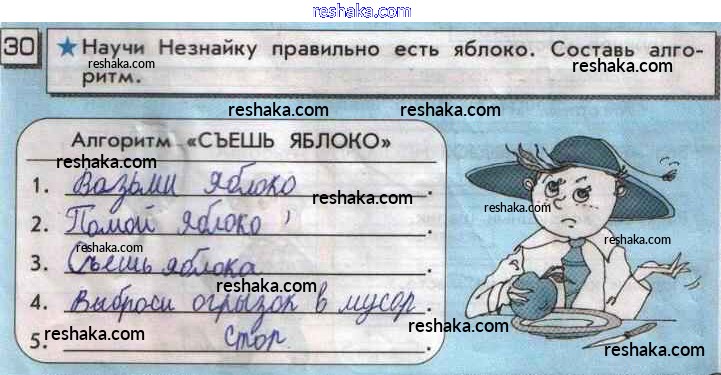 reshaka.com
30 ★ Научи Незнайку правильно есть яблоко. Составь алго-
ритм. reshaka.com
reshaka.com reshaka.com
Алгоритм «СЪЕШЬ ЯБЛОКО»
reshaka.com reshaka.com
1. Возьми яблоко.
reshaka.com reshaka.com
2. Помой яблоко.
reshaka.com reshaka.com
3. Съешь яблока.
reshaka.com reshaka.com
4. Выброси огрызок в мусор.
reshaka.com reshaka.com
5. Стоп.
reshaka.com